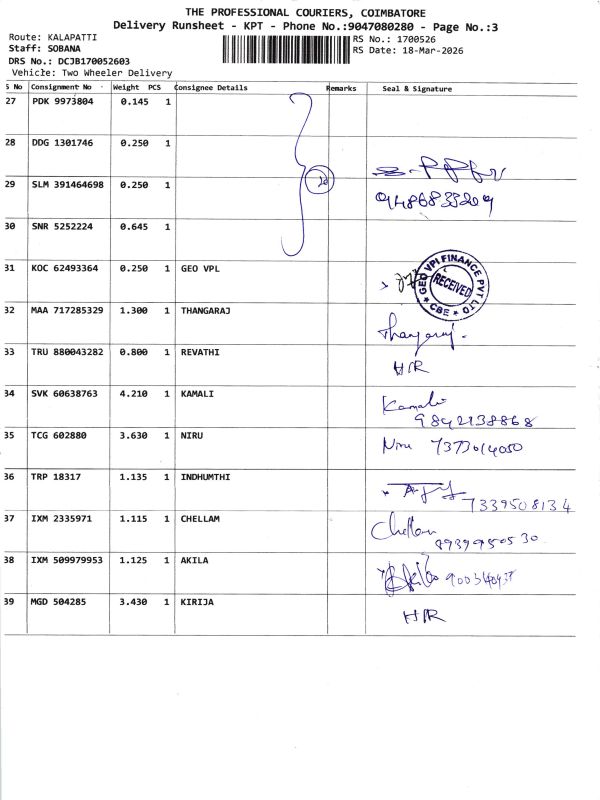 THE PROFESSIONAL COURIERS, COIMBATORE
Delivery Runsheet - KPT - Phone No.:9047080280 - Page No.:3
Route: KALAPATTI
RS No.: 1700526
Staff: SOBANA
RS Date: 18-Mar-2026
DRS No.: DCJB170052603
Vehicle: Two Wheeler Delivery
S No Consignment No Weight PCS Consignee Details Remarks Seal & Signature
27 PDK 9973804 0.145 1
28 DDG 1301746 0.250 1
29 SLM 391464698 0.250 1
9486833209
30 SNR 5252224 0.645 1
31 KOC 62493364 0.250 1 GEO VPL
GEO VPI FINANCE PVT LTD
RECEIVED
CBE
32 MAA 717285329 1.300 1 THANGARAJ
Thangaraj.
33 TRU 880043282 0.800 1 REVATHI
H/R
34 SVK 60638763 4.210 1 KAMALI
Kamali
9842138868
35 TCG 602880 3.630 1 NIRU
Niru 7373014050
36 TRP 18317 1.135 1 INDHUMTHI
7339508134
37 IXM 2335971 1.115 1 CHELLAM
Chellam
8939950530
38 IXM 509979953 1.125 1 AKILA
Akila
39 MGD 504285 3.430 1 KIRIJA
H/R